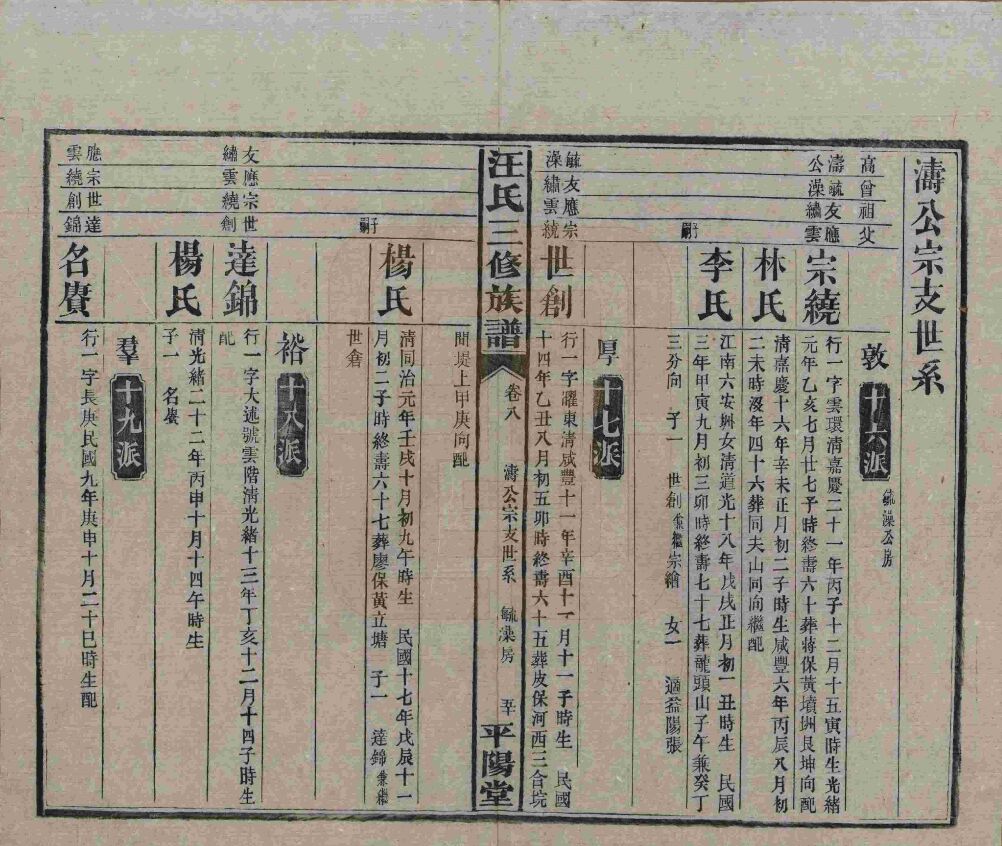 濤公宗支世系
高曾祖父
濤公 毓澡 友繡 應雲
敦 十六派 毓澡公房
宗繞
行一字雲環清嘉慶二十一年丙子十二月十五寅時生光緒
元年乙亥七月廿七子時終壽六十葬蔣保黃墳洲艮坤向配
林氏
清嘉慶十六年辛未正月初二子時生咸豐六年丙辰八月初
二未時沒年四十六葬同夫山同向繼配
李氏
江南六安州女清道光十八年戊戌正月初一丑時生 民國
三年甲寅九月初三卯時終壽七十七葬龍頭山子午兼癸丁
三分向 子一 世創兼繼宗繪 女一 適益陽張
子嗣
厚 十七派
毓澡 友繡 應雲 宗繞
世創
行一字曜東清咸豐十一年辛酉十一月十一子時生 民國
十四年乙丑八月初五卯時終壽六十五葬皮保河西三合垸
汪氏三修族譜 卷八 濤公宗支世系 毓澡房 平陽堂
間堤上甲庚向配
楊氏
清同治元年壬戌十月初九午時生 民國十七年戊辰十一
月初二子時終壽六十七葬廖保黃立塘 子一 達錦兼繼
世倉
子嗣
裕 十八派
友繡 應雲 宗繞 世創
達錦
行一字大述號雲階清光緒十三年丁亥十二月十四子時生
配
楊氏
清光緒二十二年丙申十月十四午時生
子一 名賡
羣 十九派
應雲 宗繞 世創 達錦
名賡
行一字長庚民國九年庚申十月二十巳時生配